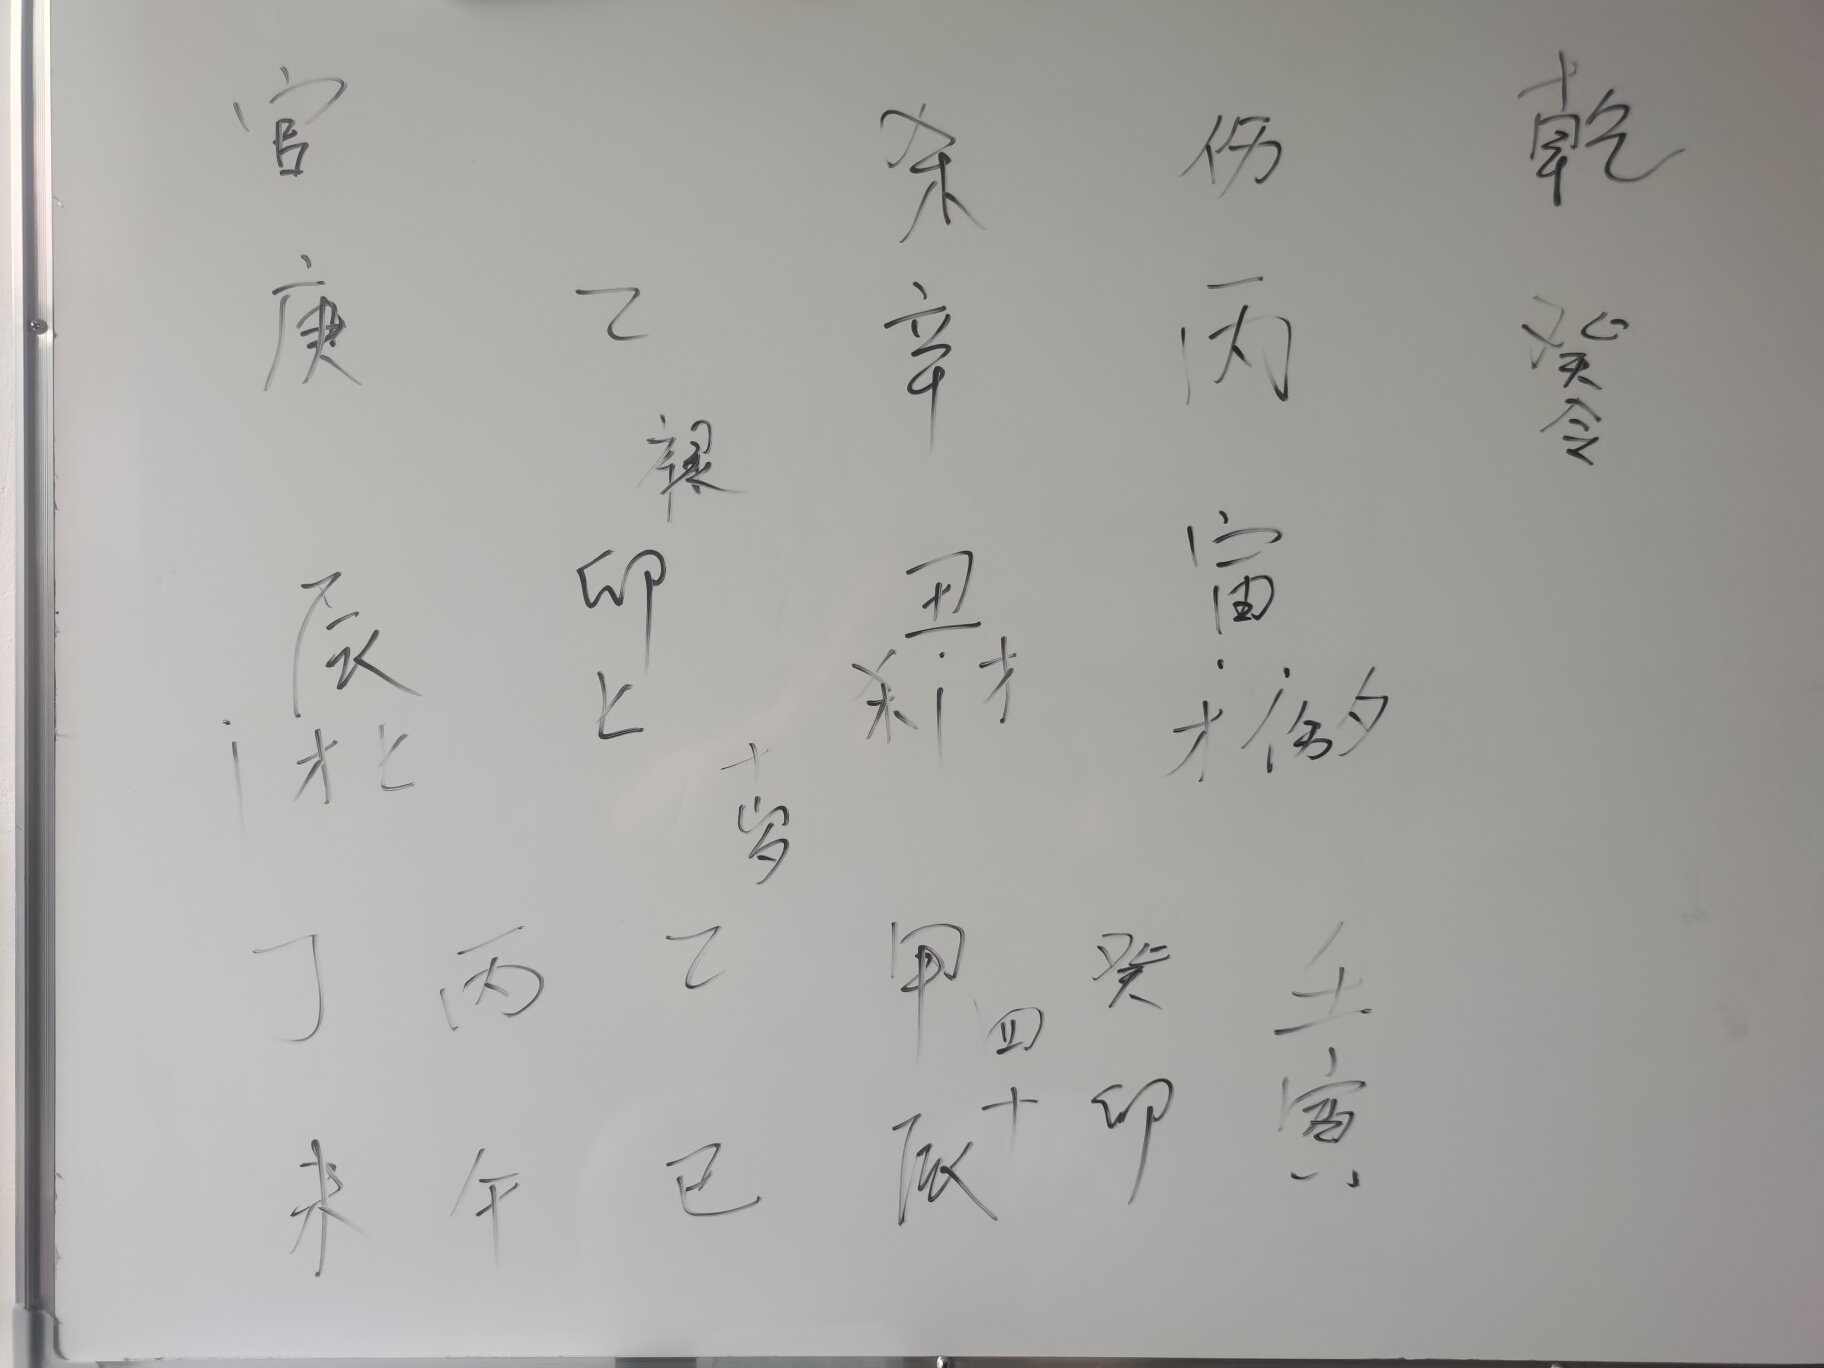 乾 伤 杀 官
癸令 丙 辛 乙 庚
寅 丑 卯 辰
才 伤 夕 杀 才 比 才 比
十岁
壬 癸 甲 乙 丙 丁
四十
寅 卯 辰 巳 午 未